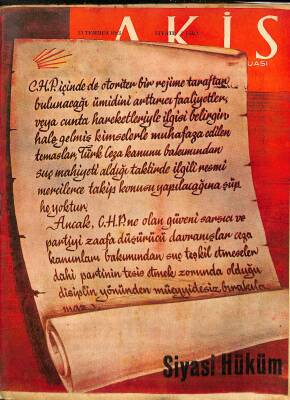 AKİS
C.H.P. içinde de otoriter bir rejime taraftar
bulunacağı ümidini arttırıcı faaliyetler,
veya cunta hareketleriyle ilgisi belirgin
hale gelmiş kimselerle muhafaza edilen
temaslar, Türk Ceza kanunu bakımından
suç mahiyeti aldığı taktirde ilgili resmî
mercilerce takip konusu yapılacağına şüp
he yoktur.
Ancak, C.H.P. ne olan güveni sarsıcı ve
partiyi zaafa düşürücü davranışlar ceza
kanunları bakımından suç teşkil etmeseler
dahi partinin tesis etmek zorunda olduğu
disiplin yönünden müeyyidesiz bırakıla
maz
Siyasi Hüküm